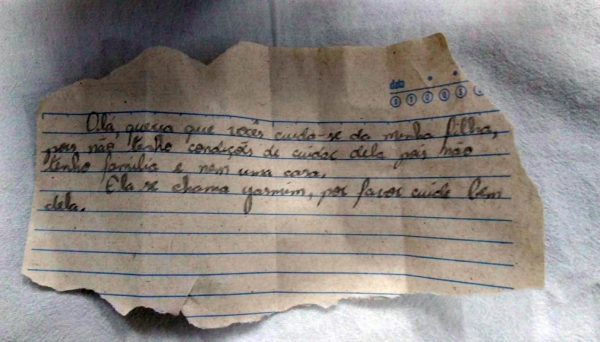 data
D T Q Q S
Olá, queria que vocês cuida-se da minha filha,
pois não tenho condições de cuidar dela pois não
tenho família e nem uma casa.
Ela se chama yasmim, por favor cuide bem
dela.